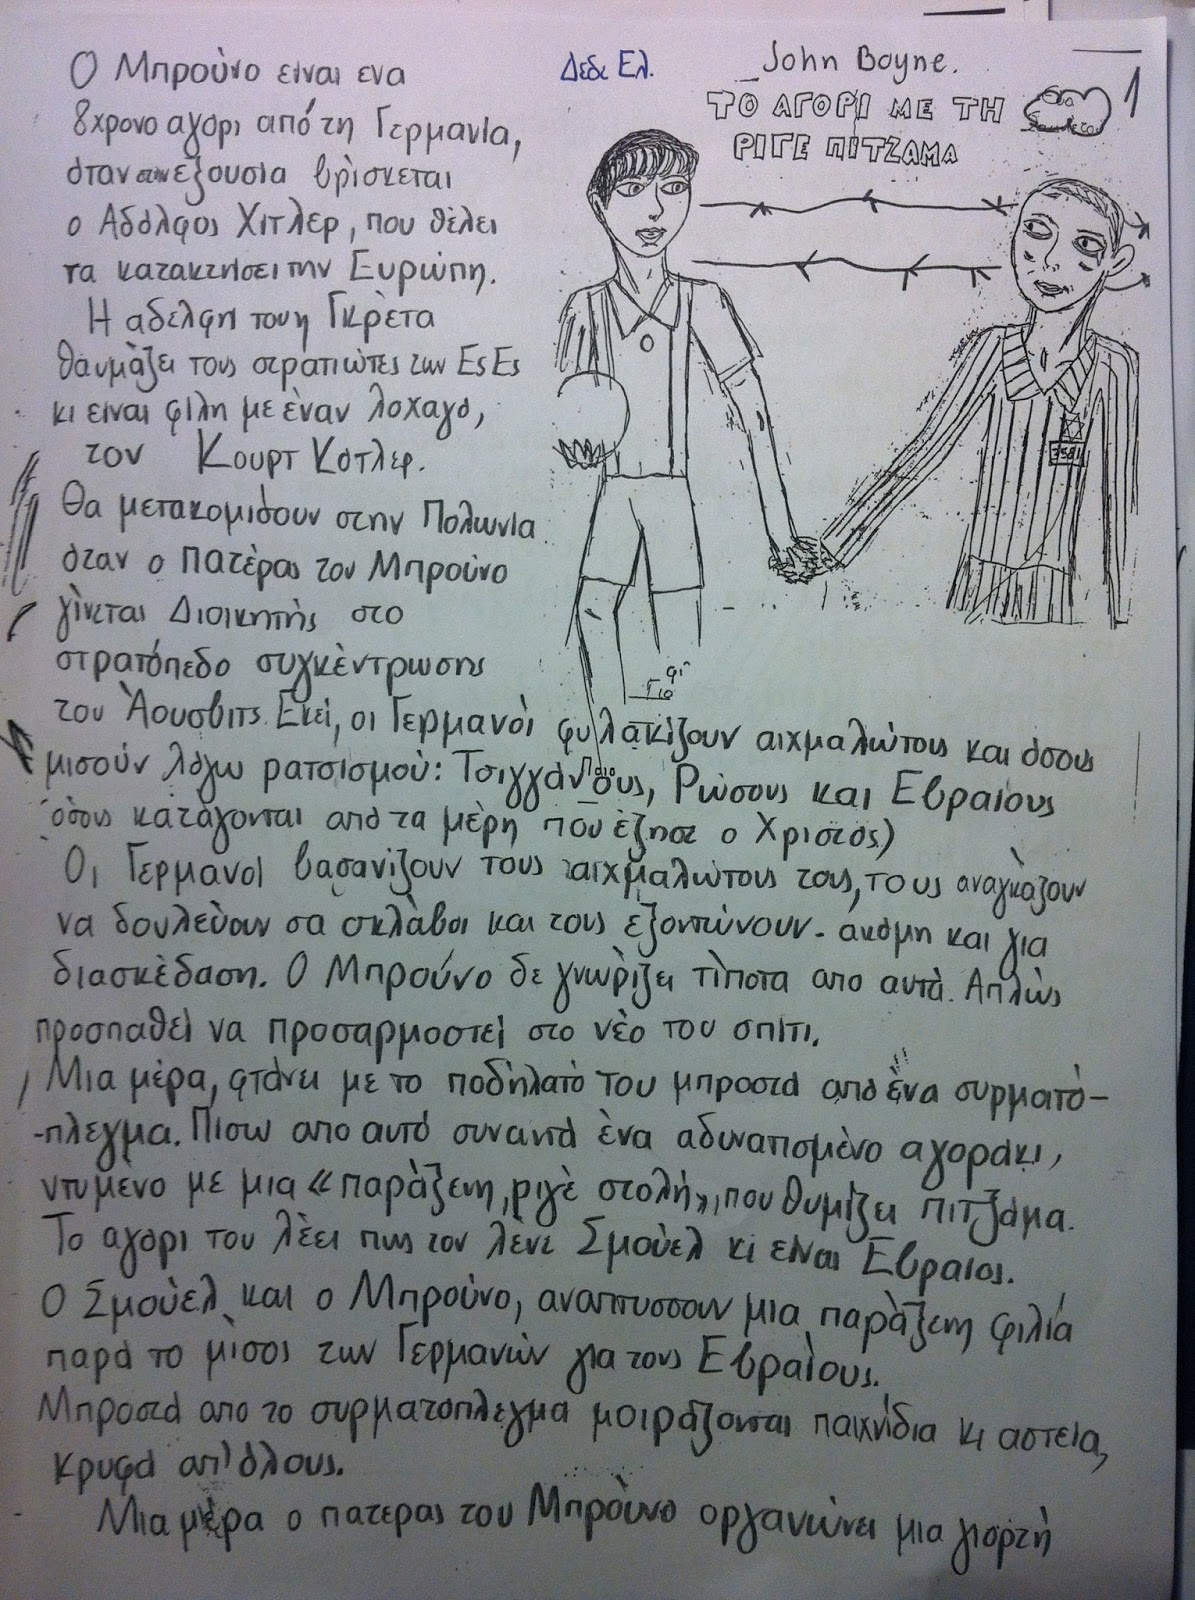 Δεδε Ελ.
John Boyne.
1
ΤΟ ΑΓΟΡΙ ΜΕ ΤΗ
ΡΙΓΕ ΠΙΤΖΑΜΑ
Ο Μπρούνο είναι ενα
8χρονο αγόρι από τη Γερμανία,
όταν στην εξουσία βρίσκεται
ο Αδόλφος Χίτλερ, που θέλει
να κατακτήσει την Ευρώπη.
Η αδελφή του η Γκρέτα
θαυμάζει τους στρατιώτες των Ες Ες
κι είναι φίλη με έναν λοχαγό,
τον Κουρτ Κότλερ.
Θα μετακομίσουν στην Πολωνία
όταν ο Πατέρας του Μπρούνο
γίνεται Διοικητής στο
στρατόπεδο συγκέντρωσης
του Άουσβιτς. Εκεί, οι Γερμανοί φυλακίζουν αιχμαλώτους και όσους
μισούν λόγω ρατσισμού: Τσιγγάνους, Ρώσους και Εβραίους
όσους κατάγονται από τα μέρη που έζησε ο Χριστός)
Οι Γερμανοί βασανίζουν τους αιχμαλώτους τους, τους αναγκάζουν
να δουλεύουν σα σκλάβοι και τους εξοντώνουν - ακόμη και για
διασκέδαση. Ο Μπρούνο δε γνωρίζει τίποτα απο αυτά. Απλώς
προσπαθεί να προσαρμοστεί στο νέο του σπίτι.
Μια μέρα, φτάνει με το ποδήλατό του μπροστά από ένα συρματό-
-πλεγμα. Πίσω απο αυτό συναντά ένα αδυνατισμένο αγοράκι,
ντυμένο με μια «παράξενη, ριγέ στολή», που θυμίζει πιτζάμα.
Το αγόρι του λέει πως τον λένε Σμούελ κι είναι Εβραίος.
Ο Σμούελ και ο Μπρούνο, αναπτύσσουν μια παράξενη φιλία
παρά το μίσος των Γερμανών για τους Εβραίους.
Μπροστά απο το συρματόπλεγμα μοιράζονται παιχνίδια κι αστεία,
κρυφά απ' όλους.
Μια μέρα ο πατέρας του Μπρούνο οργανώνει μια γιορτή